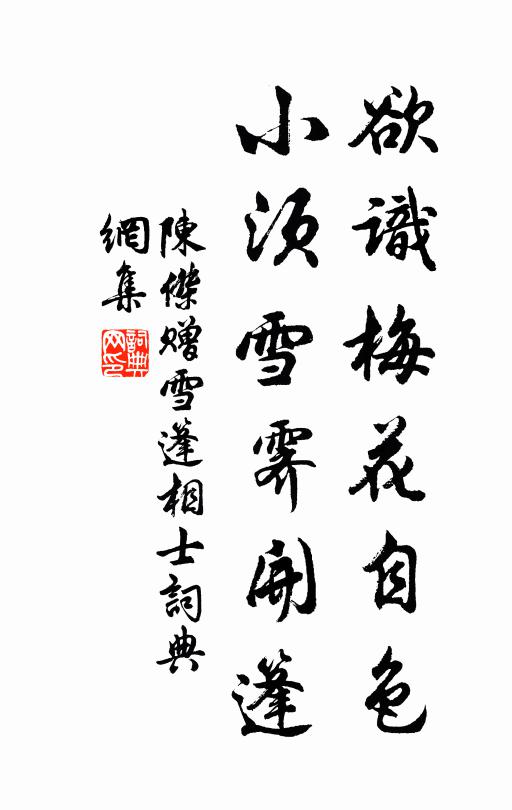 欲識梅花自色
小須雪霽開篷
陳傑贈雪篷相士詞典
網集
詞典
网印